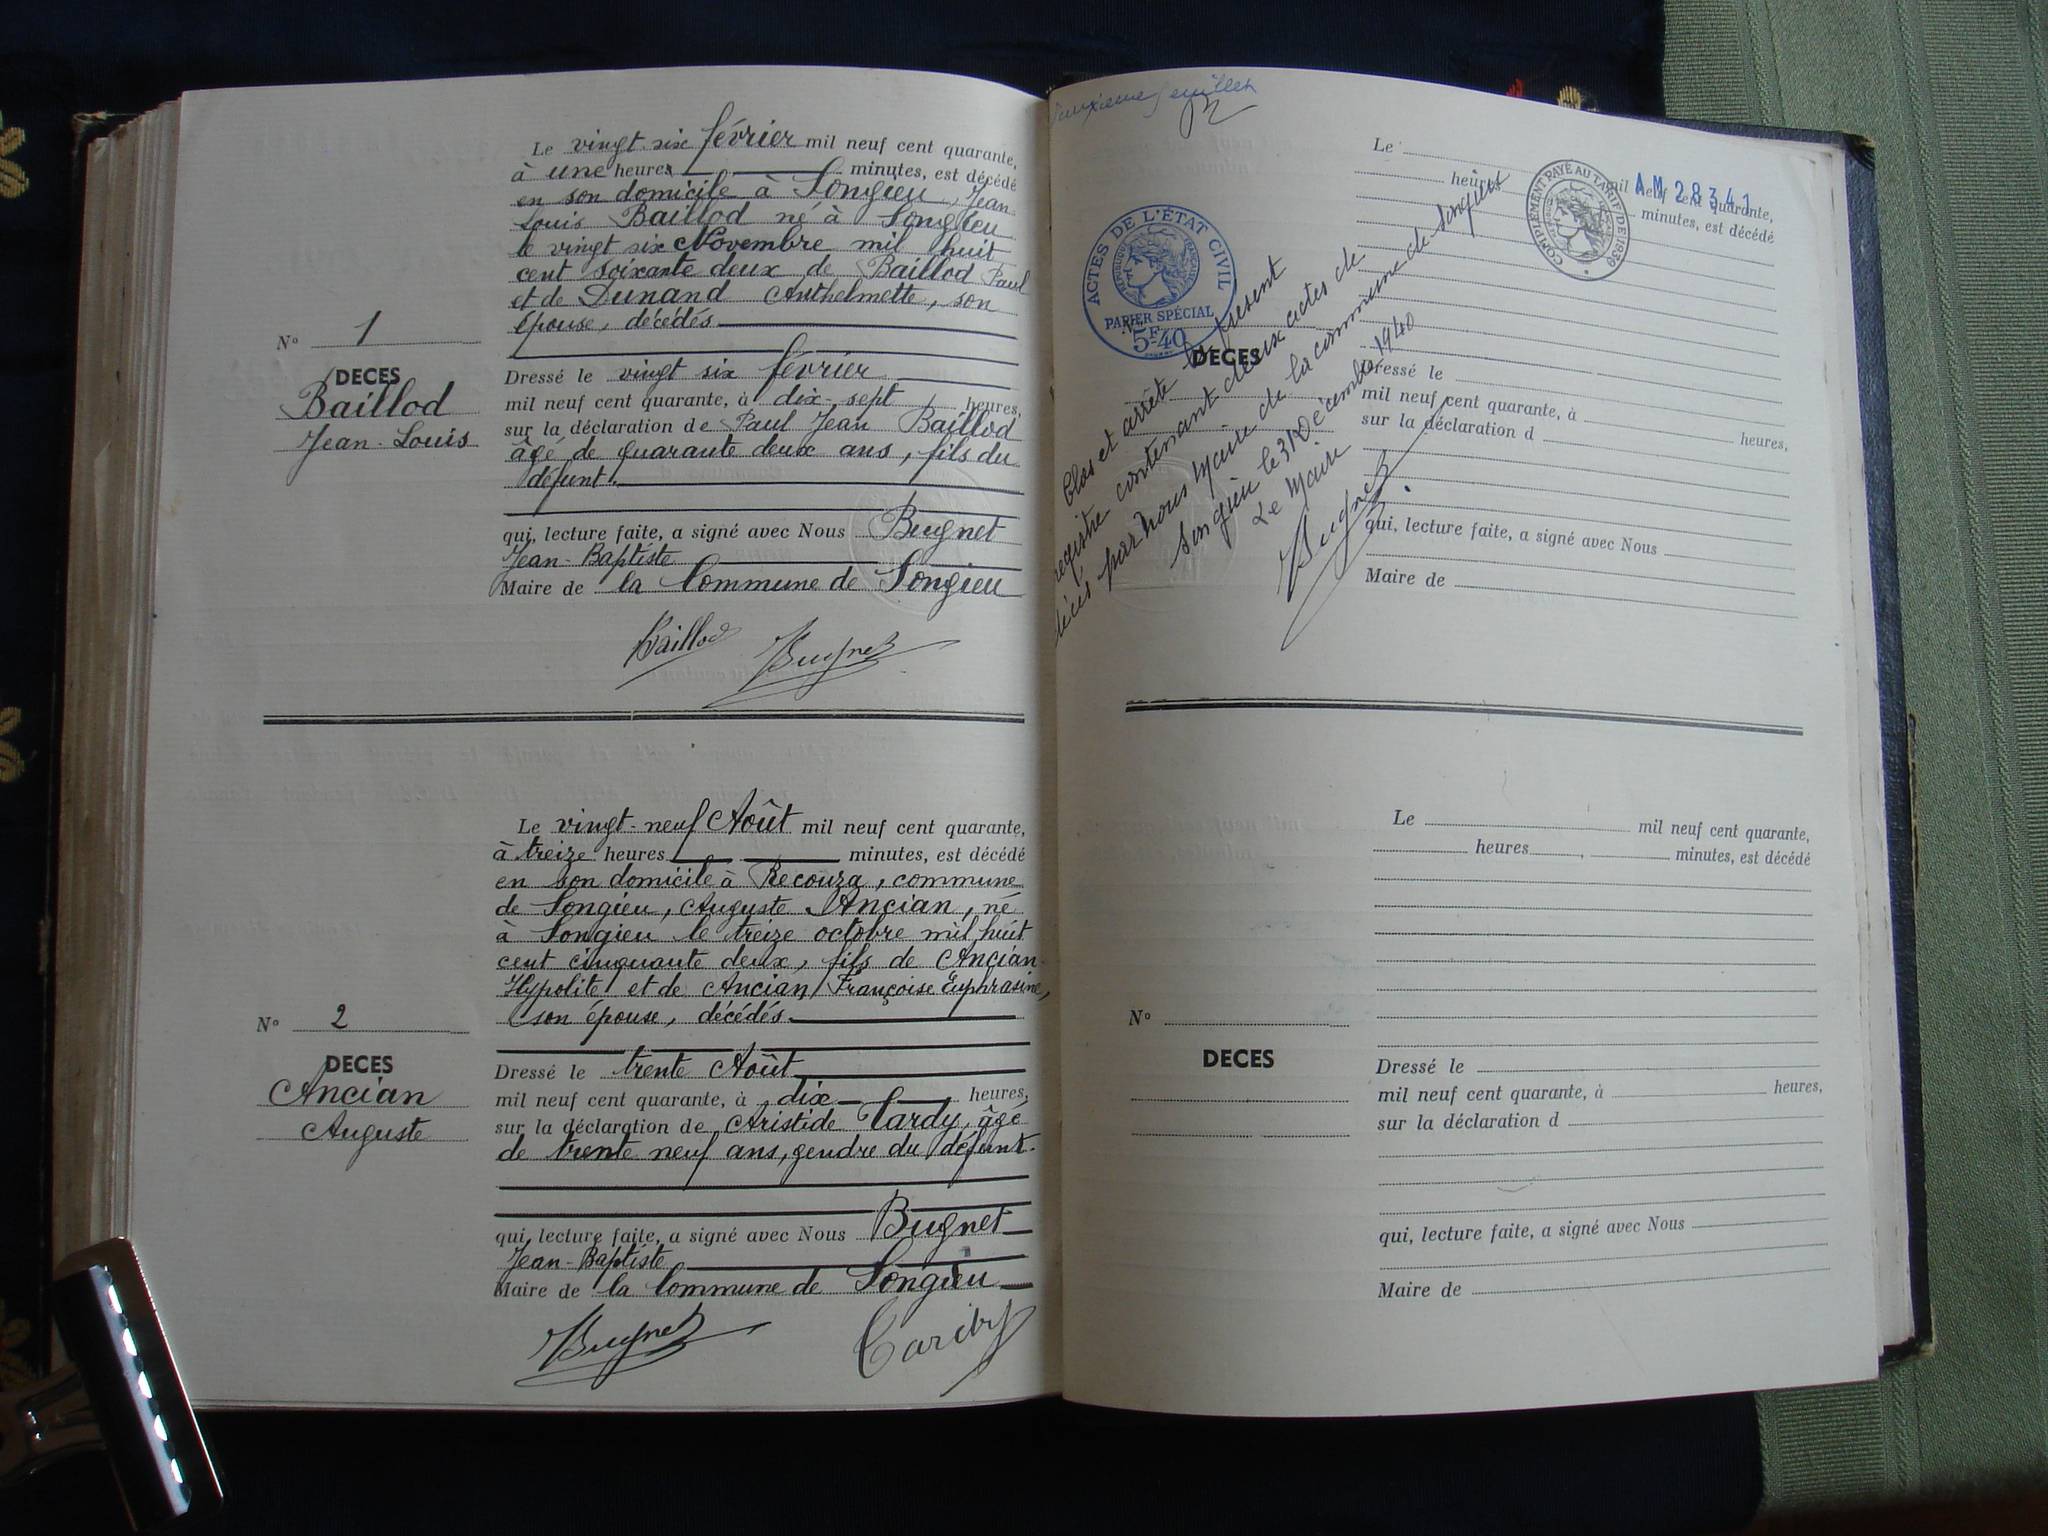 Le vingt-six février mil neuf cent quarante,
à une heures minutes, est décédé
en son domicile à Songieu, Jean
Louis Baillod né à Songieu
le vingt six Novembre mil huit
cent soixante deux de Baillod Paul
et de Dunand Anthelmette, son
épouse, décédés
N° 1
DECES
Baillod
Jean-Louis
Dressé le vingt six février
mil neuf cent quarante, à dix-sept heures,
sur la déclaration de Paul Jean Baillod
âgé de quarante deux ans, fils du
défunt.
qui, lecture faite, a signé avec Nous Bugnet
Jean-Baptiste
Maire de la Commune de Songieu
Baillod Bugnet
Le vingt-neuf Août mil neuf cent quarante,
à treize heures minutes, est décédé
en son domicile à Recouza, commune
de Songieu, Auguste Ancian, né
à Songieu le treize octobre mil huit
cent cinquante deux, fils de Ancian
Hypolite et de Ancian Françoise Euphrasine,
son épouse, décédés.
N° 2
DECES
Ancian
Auguste
Dressé le trente Août
mil neuf cent quarante, à dix heures,
sur la déclaration de Aristide Tardy, âgé
de trente neuf ans, gendre du défunt.
qui, lecture faite, a signé avec Nous Bugnet
Jean-Baptiste
Maire de la Commune de Songieu
Bugnet Tardy
Deuxième feuillet
ACTES DE L'ÉTAT CIVIL
RÉPUBLIQUE FRANÇAISE
PAPIER SPÉCIAL
5F40
COMPLÉMENT PAYÉ AU TARIF DE 1939
AM 28341
Clos et arrêté le présent
registre contenant deux actes de
décès par nous Maire de la commune de Songieu
Songieu le 31 Décembre 1940
Le Maire
Bugnet
Le mil neuf cent quarante,
heures minutes, est décédé
N°
DECES
Dressé le
mil neuf cent quarante, à heures,
sur la déclaration d
qui, lecture faite, a signé avec Nous
Maire de
Le mil neuf cent quarante,
heures , minutes, est décédé
N°
DECES
Dressé le
mil neuf cent quarante, à heures,
sur la déclaration d
qui, lecture faite, a signé avec Nous
Maire de